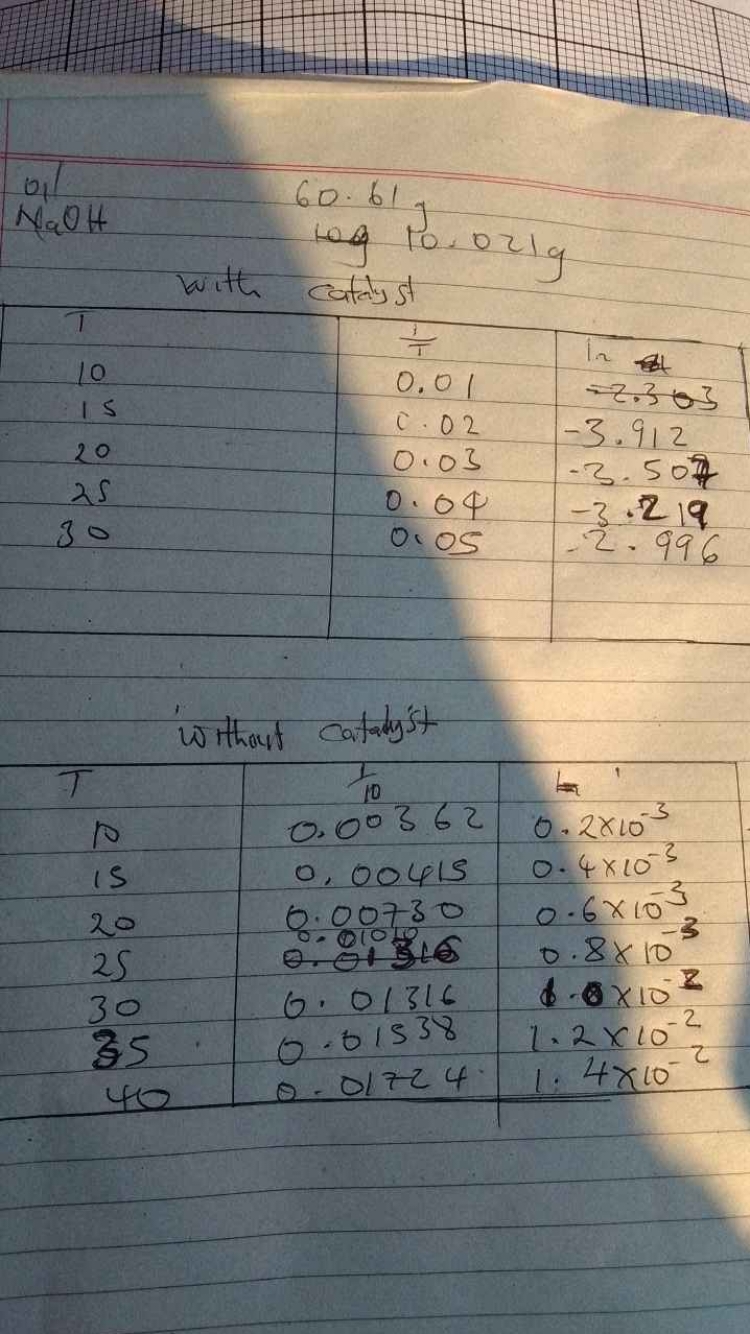 oil 60.61g
NaOH 10.021g
With catalyst
T 1/T ln
10 0.01 -2.303
15 0.02 -3.912
20 0.03 -3.507
25 0.04 -3.219
30 0.05 -2.996
Without catalyst
T 1/10
10 0.00362 0.2×10⁻³
15 0.00415 0.4×10⁻³
20 0.00730 0.6×10⁻³
25 0.8×10⁻³
30 0.01316 1.0×10⁻²
35 0.01538 1.2×10⁻²
40 0.01724 1.4×10⁻²